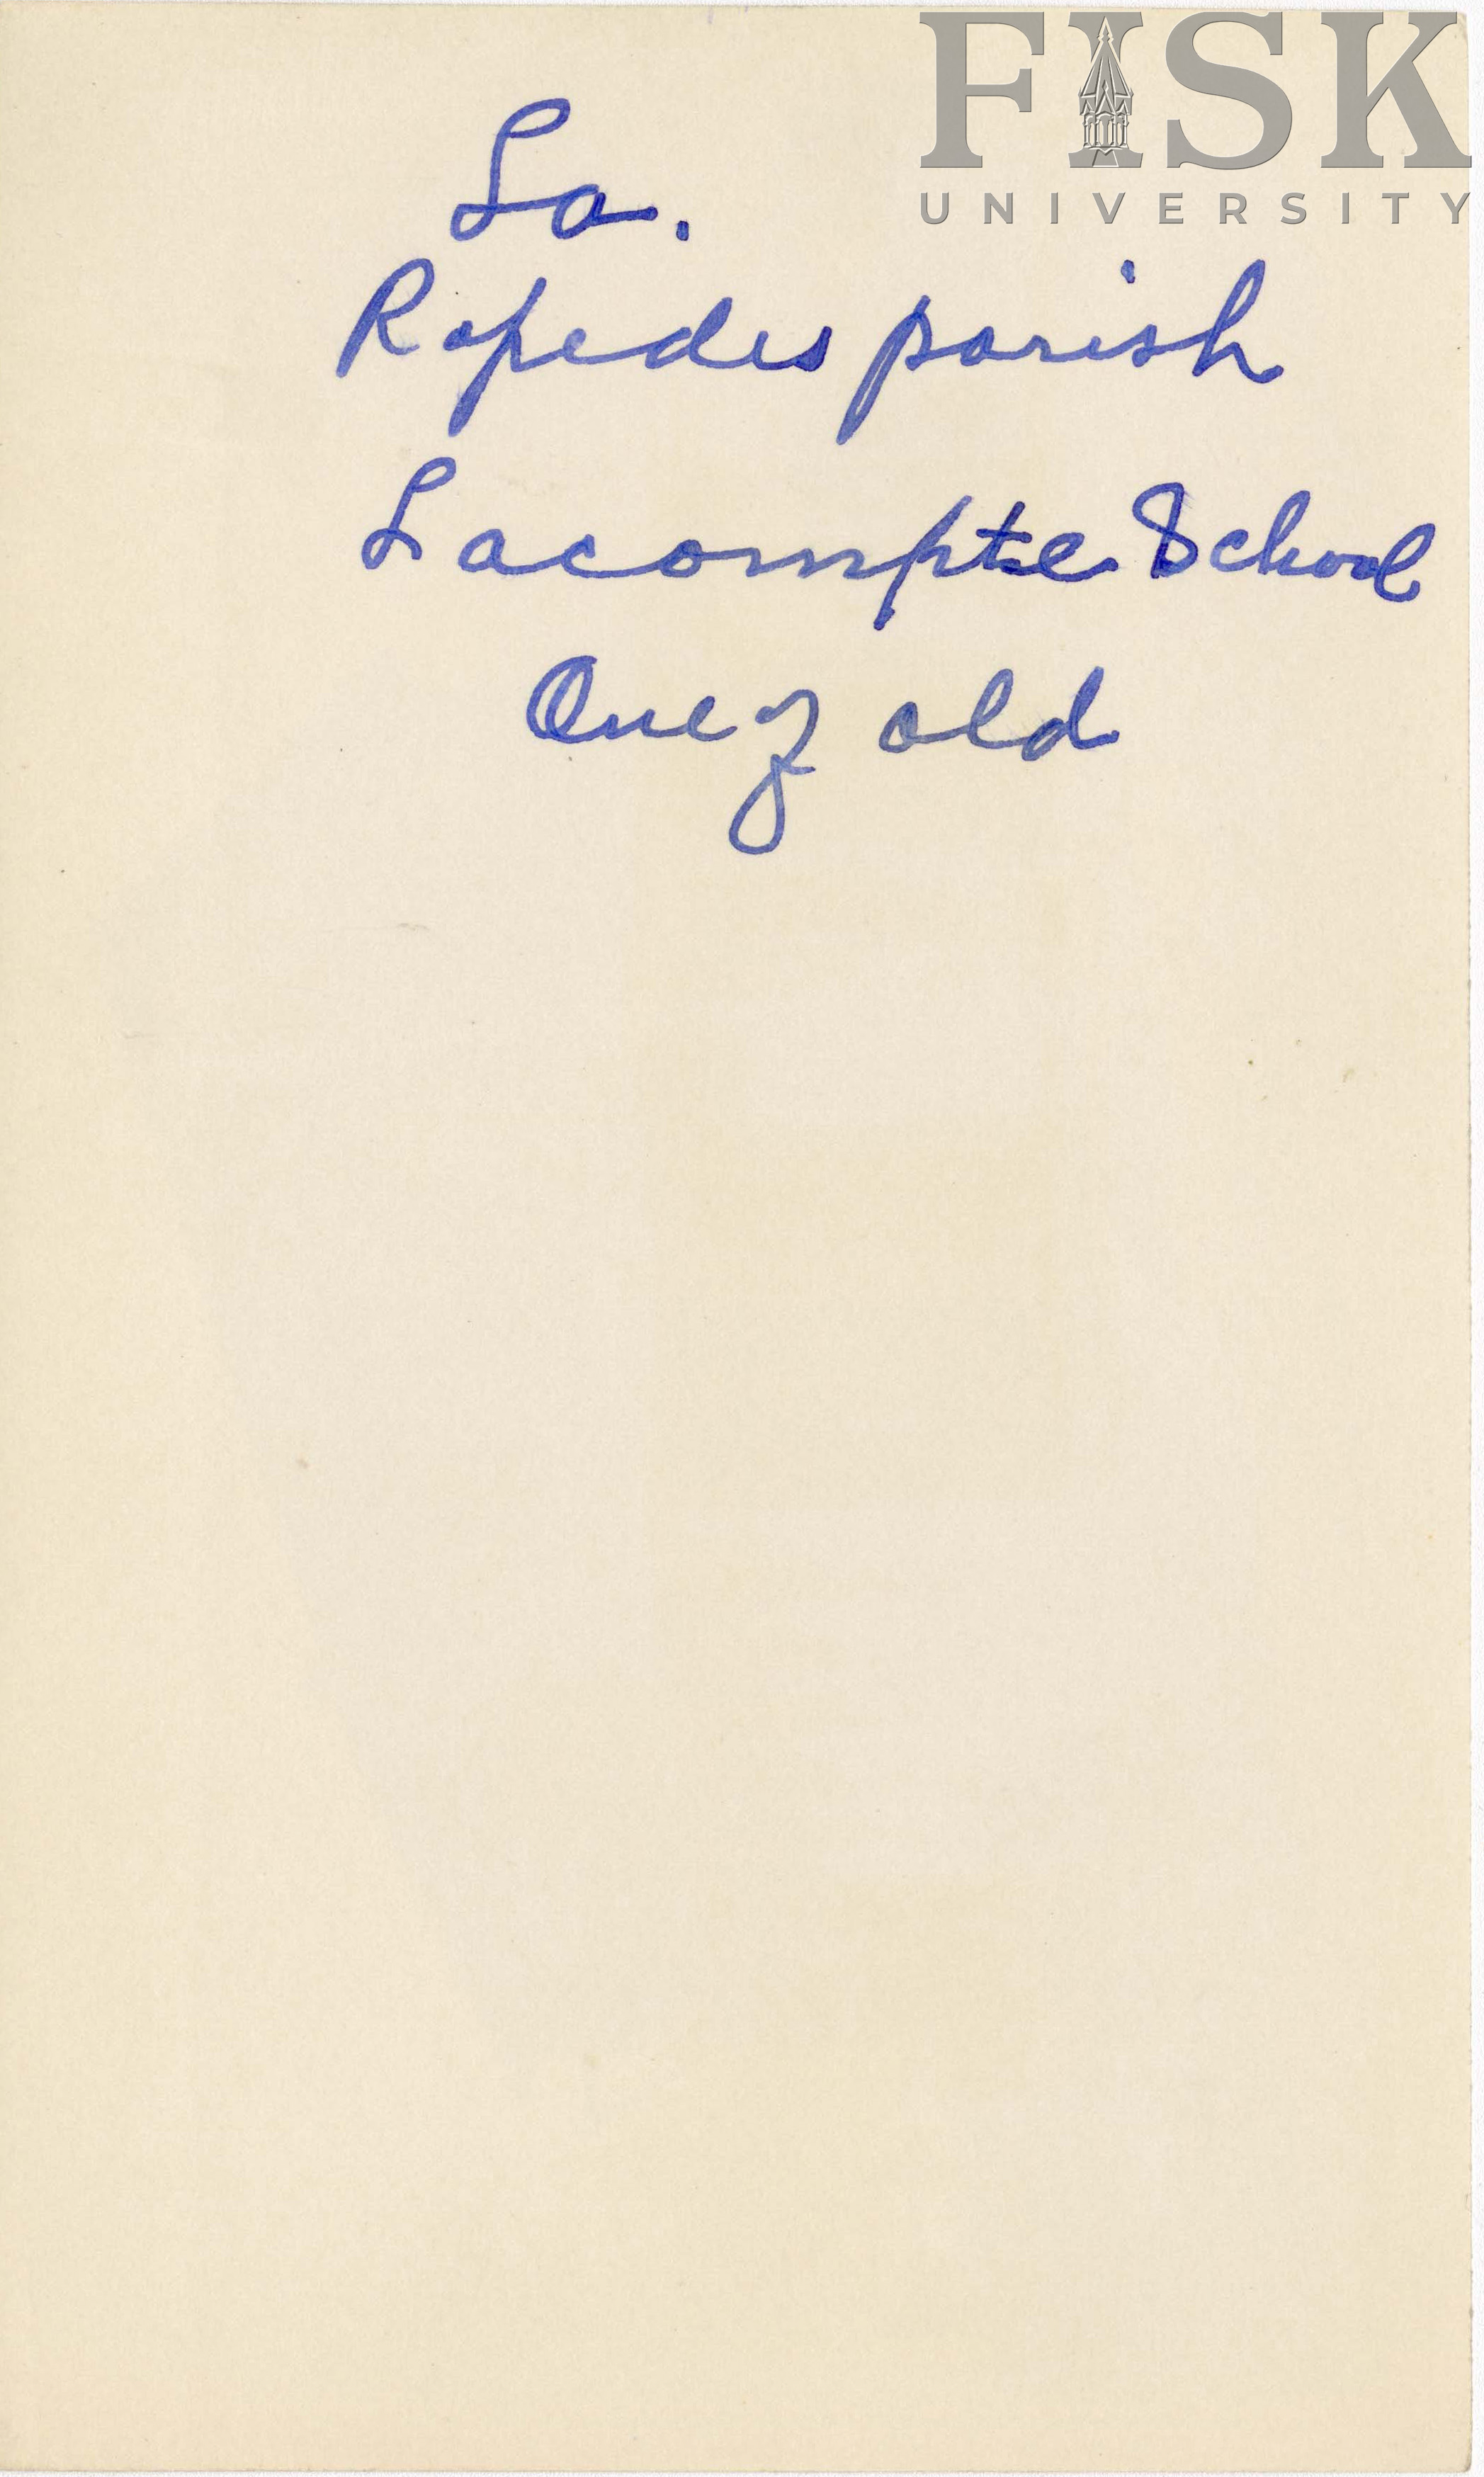 FISK
UNIVERSITY
La.
Rapedes parish
Lacompte School
One of old